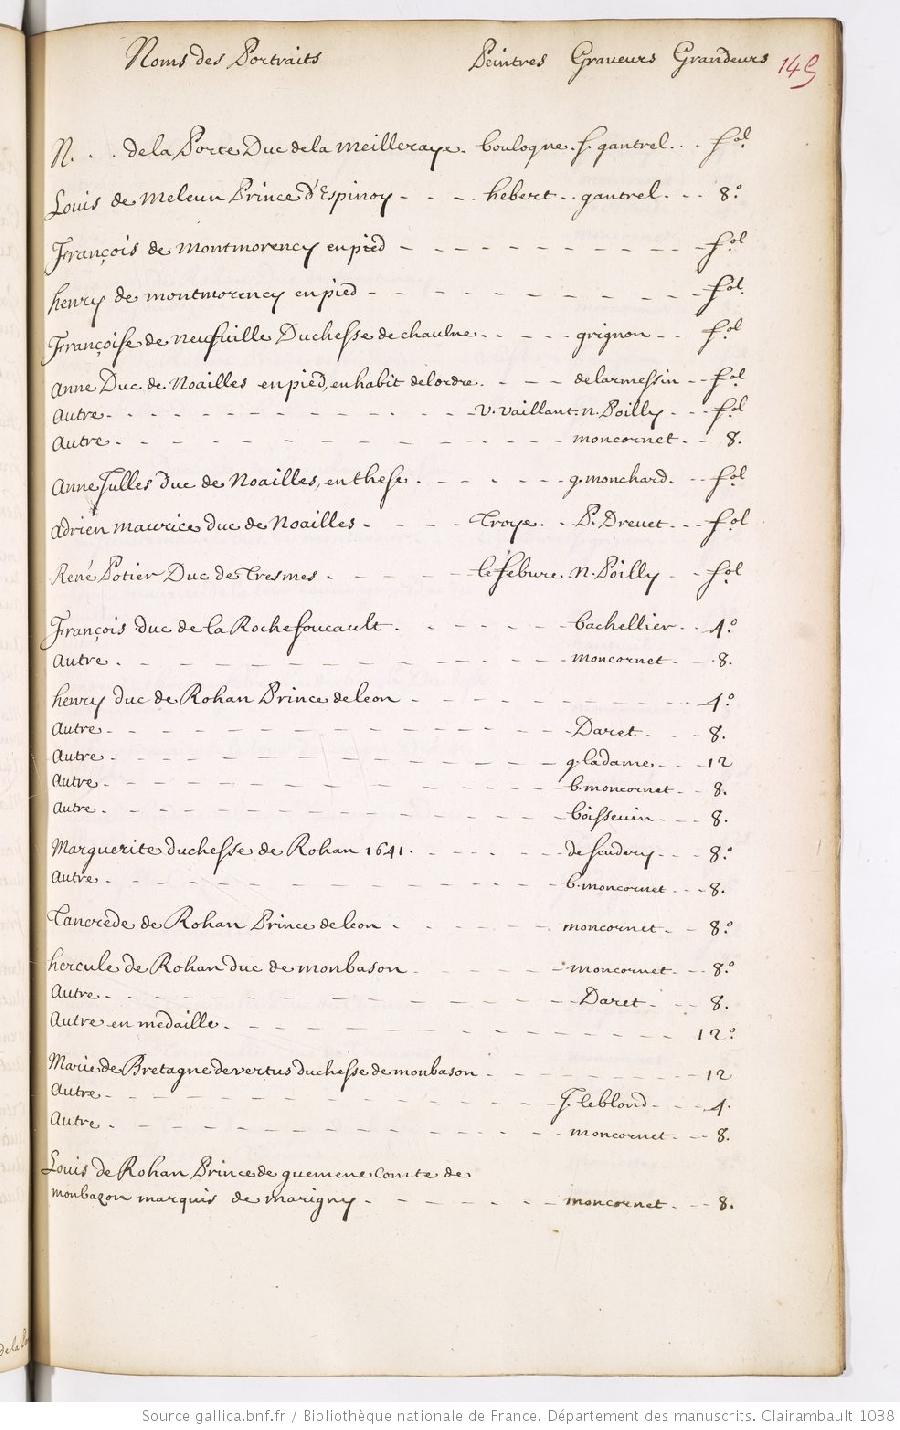 Noms des Portraits Peintres Graveurs Grandeurs 149
N. . . de la Porte Duc de la meilleraye. boulogne. h. gantrel. . . fol.
Louis de meleun Prince d'Espinoy - - - - hebert - - gantrel. - - . 8.º
François de montmorency en pied - - - - - - - - - - - fol
henry de montmorency en pied - - - - - - - - - - - fol.
Françoise de neufville Duchesse de chaulne. - . - - . grignon - - . fol
anne Duc. de. Noailles en pied, en habit de lordre. - - - - de larmessin - - fol
autre. - - - - - - - - - - - v. vaillant. n. Poilly. - - - fol
autre. - - - - - - - - - - - moncornet. - - 8.
anne Julles Duc de Noailles, en these. - - - - - g. monchard. - - fol
adrien maurice duc de Noailles - - - - Troye. . . P. Drevet. . . fol
René Potier Duc de Tresmes. - - - - lefebure. n. Poilly - - fol
François duc de la Rochefoucault. - - - - - bachellier. . 4.º
autre. - - - - - - - - - - moncornet. - - 8.
henry duc de Rohan Prince de leon - - - - - - - - - 4.º
autre. - - - - - - - - - - Daret - - 8.
autre. - - - - - - - - - - g. ladame. - - 12
autre. - - - - - - - - - - b. moncornet. - - 8.
autre. - - - - - - - - - - boissevin - - - 8.
marguerite duchesse de Rohan 1641. - - - - - de scudery. - - . 8.º
autre. - - - - - - - - - - b. moncornet. - - 8.
Tancrede de Rohan Prince de leon - - - - - - moncornet. - - 8.º
hercule de Rohan duc de monbason. - - - - - moncornet. - - 8.º
autre. - - - - - - - - - - Daret. - - - 8.
autre en medaille. - - - - - - - - - - - - 12.º
marie de Bretagne de vertus duchesse de monbason - - - - - - - 12
autre. - - - - - - - - - - J. leblond. - - - 4.
autre - - - - - - - - - - moncornet. - - 8.
Louis de Rohan Prince de guemene. comte de
monbazon marquis de marigny - - - - - - - moncornet. - - 8.
Source gallica.bnf.fr / Bibliothèque nationale de France. Département des manuscrits. Clairambault 1038